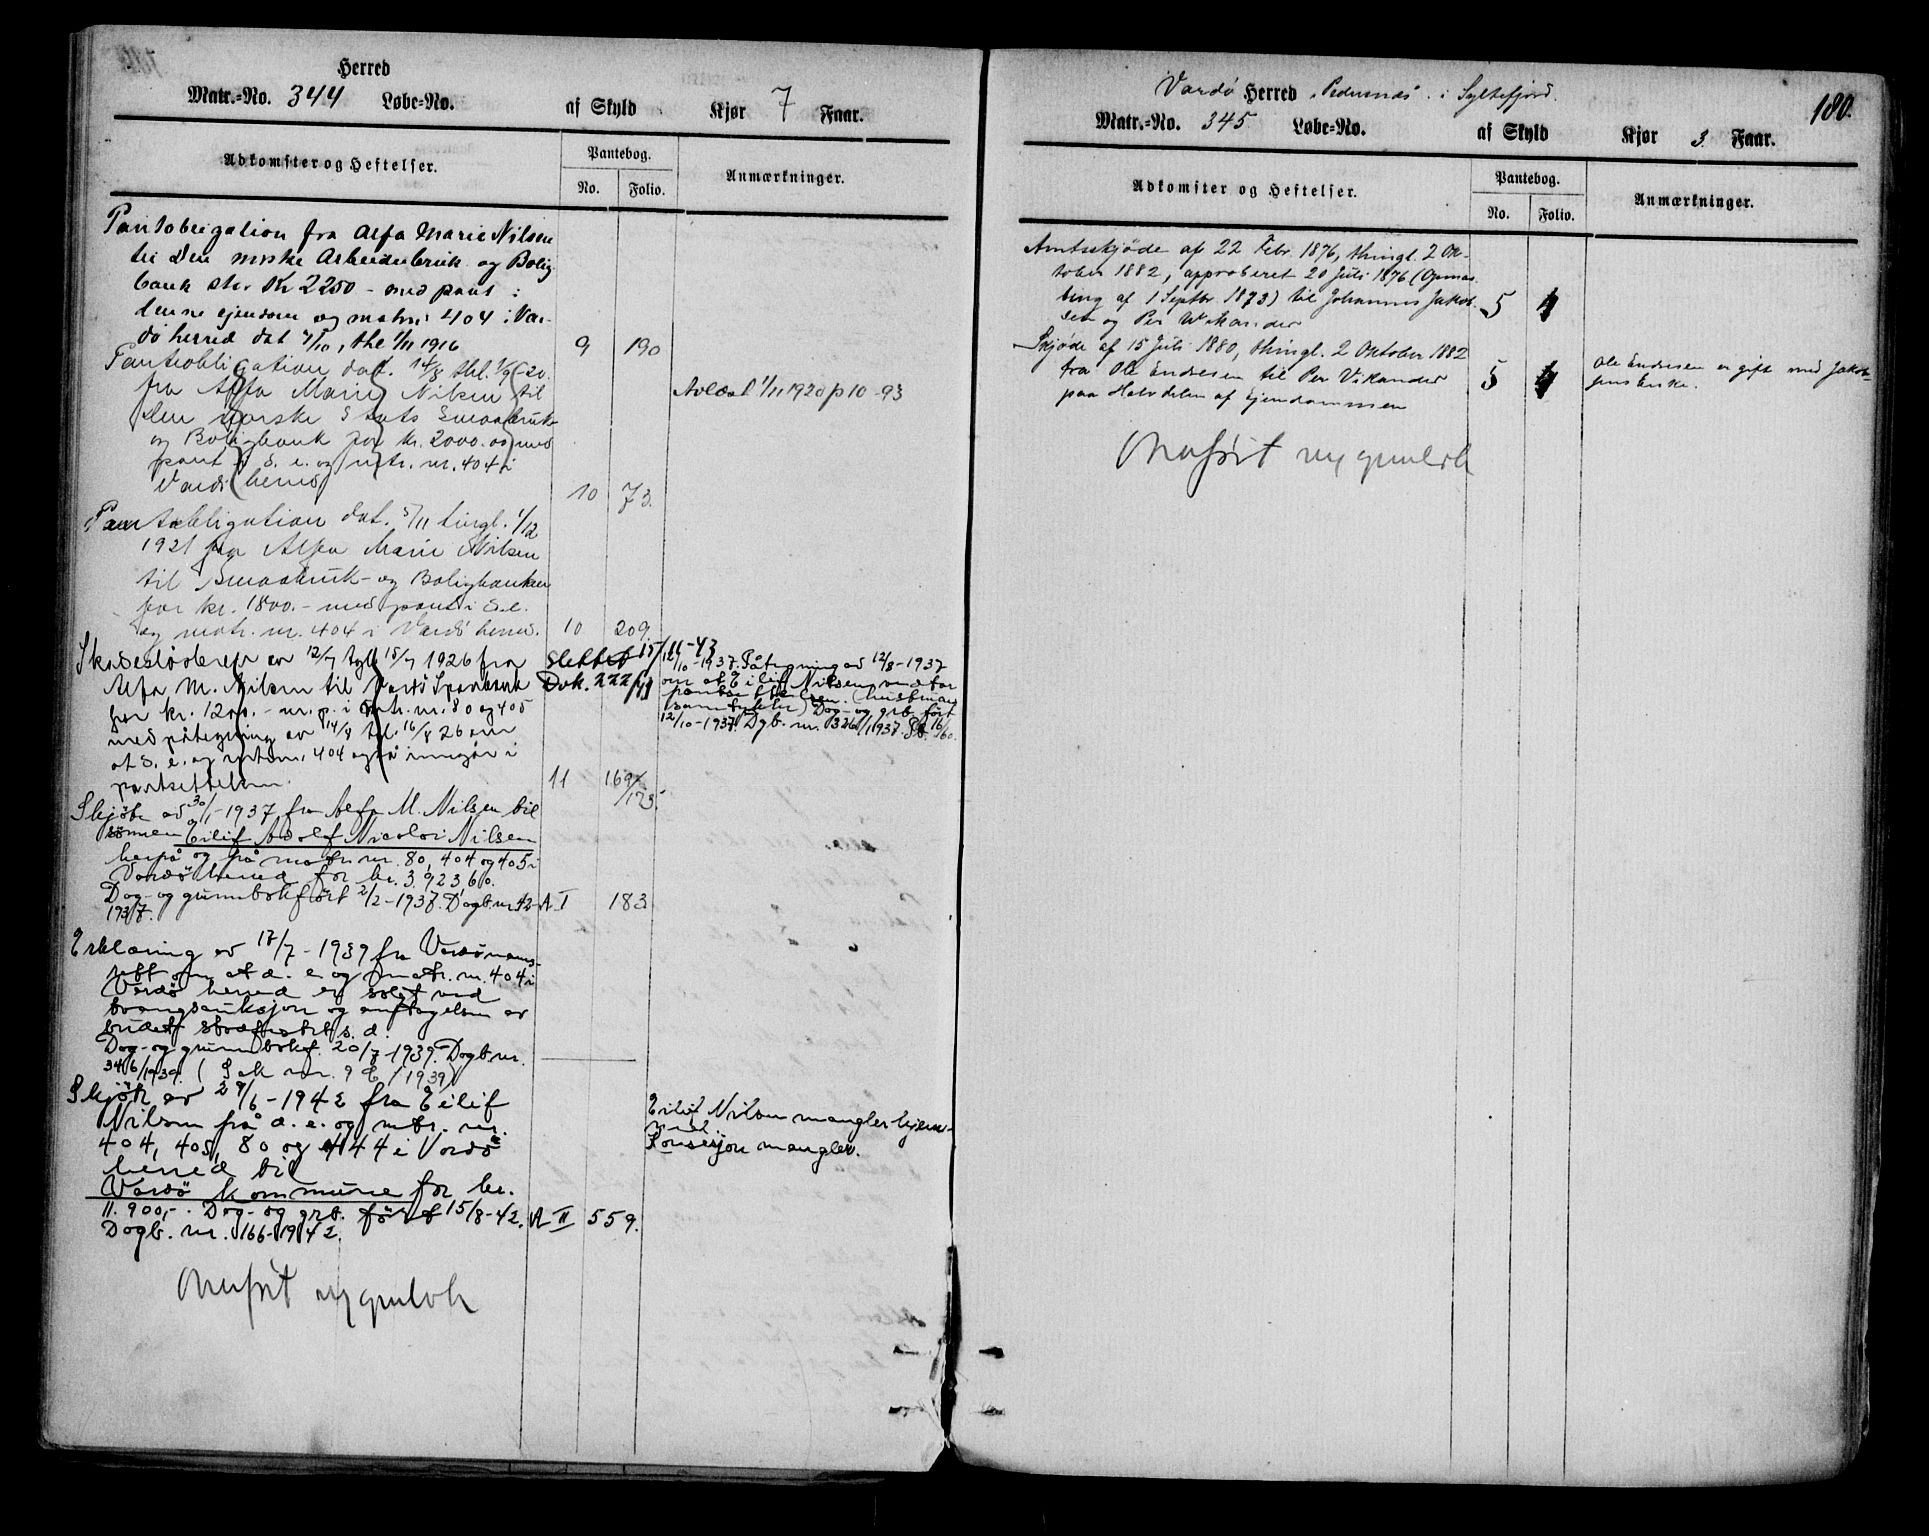 Herred
Matr.=No. 344 Løbe=No. af Skyld Kjør 7 Faar.
Adkomster og Heftelser. Pantebog. Anmærkninger.
No. Folio.
Pantobligation fra Alfa Marie Nilsen
til Den norske Arbeiderbruk og Bolig-
bank stor Kr 2250 - med pant i
denne ejendom og matr: 404 i Var-
dö herred dat 4/10, thl 1/11 1916 9 190
Panteobligation dat. 14/8 thl. 1/9-20.
fra Alfa Marie Nilsen til
den norske Stats Smaabruk-
og Boligbank for kr. 2000.00 med
pant i d. e. og mtr. nr. 404 i
Vardö herred 10 73.
Avlæst 1/11 1920 p 10 - 93
Pantobligation dat. 5/11 tingl. 1/12
1921 fra Alfa Marie Nilsen
til Smaabruk- og Boligbanken
for kr. 1800.- med pant i d.e.
og matr. nr. 404 i Vardö herred. 10 209.
Skadesløsbrev av 12/7 tgl. 15/7 1926 fra
Alfa M. Nilsen til Vardö Sparebank
for kr. 1200.- m. p. i mtr. nr. 80 og 405
med påtegning av 14/8 tgl. 16/8 26 om
at d. e. og mtr. nr. 404 også inngår i
pantsettelsen. 11 169/175.
Slettet 15/11-43
Dok. 222/43
12/10-1937. Påtegning av 12/8-1937
om at Eilif Nilsen vedtar
pantsettelsen. (hustruen
samtykker) Dag- og grb. ført
12/10-1937. Dgb. nr. 326/1937.
Skjöte av 30/1-1937 fra Alfa M. Nilsen til
sönnen Eilif Adolf Nicolai Nilsen
herpå og på matr. nr. 80, 404 og 405 i
Vardö herred for kr. 3.923,60.
Dag- og grunnbokfört 2/2-1937. Dagb. nr. 42-
1937. A I 183
Erklæring av 17/7-1939 fra Vardö nams-
rett om at d. e. og matr. nr. 404 i
Vardö herred er solgt ved
tvangsauksjon og antagelsen av
budet stadfestet s. d.
Dag- og grunnbokf. 20/7-1939. Dagb nr.
346/1939. (Sak nr. 9 /1939)
Skjöte av 29/6-1942 fra Eilif
Nilsen på d. e. og mtr. nr.
404, 405, 80 og 444 i Vardö
herred til
Vardö kommune for kr.
11.900,-. Dag- og grb. fört 15/8-42. A II 559.
Dagb. nr. 166-1942.
Eilif Nilsen mangler hjem-
mel.
Konsesjon mangler.
Innført ny grunnbok
180.
Vardö Herred „Pedersnæs" i Syltefjord.
Matr.=No. 345. Løbe=No. af Skyld Kjør 3 Faar.
Adkomster og Heftelser. Pantebog. Anmærkninger.
No. Folio.
Amtsskjöde af 22 Febr. 1876, thingl. 2 Ok-
tober 1882, approberet 20 Juli 1876 (Opmaa-
ling af 1 Septbr. 1873) til Johannes Jakob-
sen og Per Wikander 5 4
Skjöde af 15 Juli 1880, thingl. 2 Oktober 1882
fra Ole Endresen til Per Vikander
paa Halvdelen af Ejendommen 5 4
Ole Endresen er gift med Jakob-
sens Enke.
Innført ny grunnbok